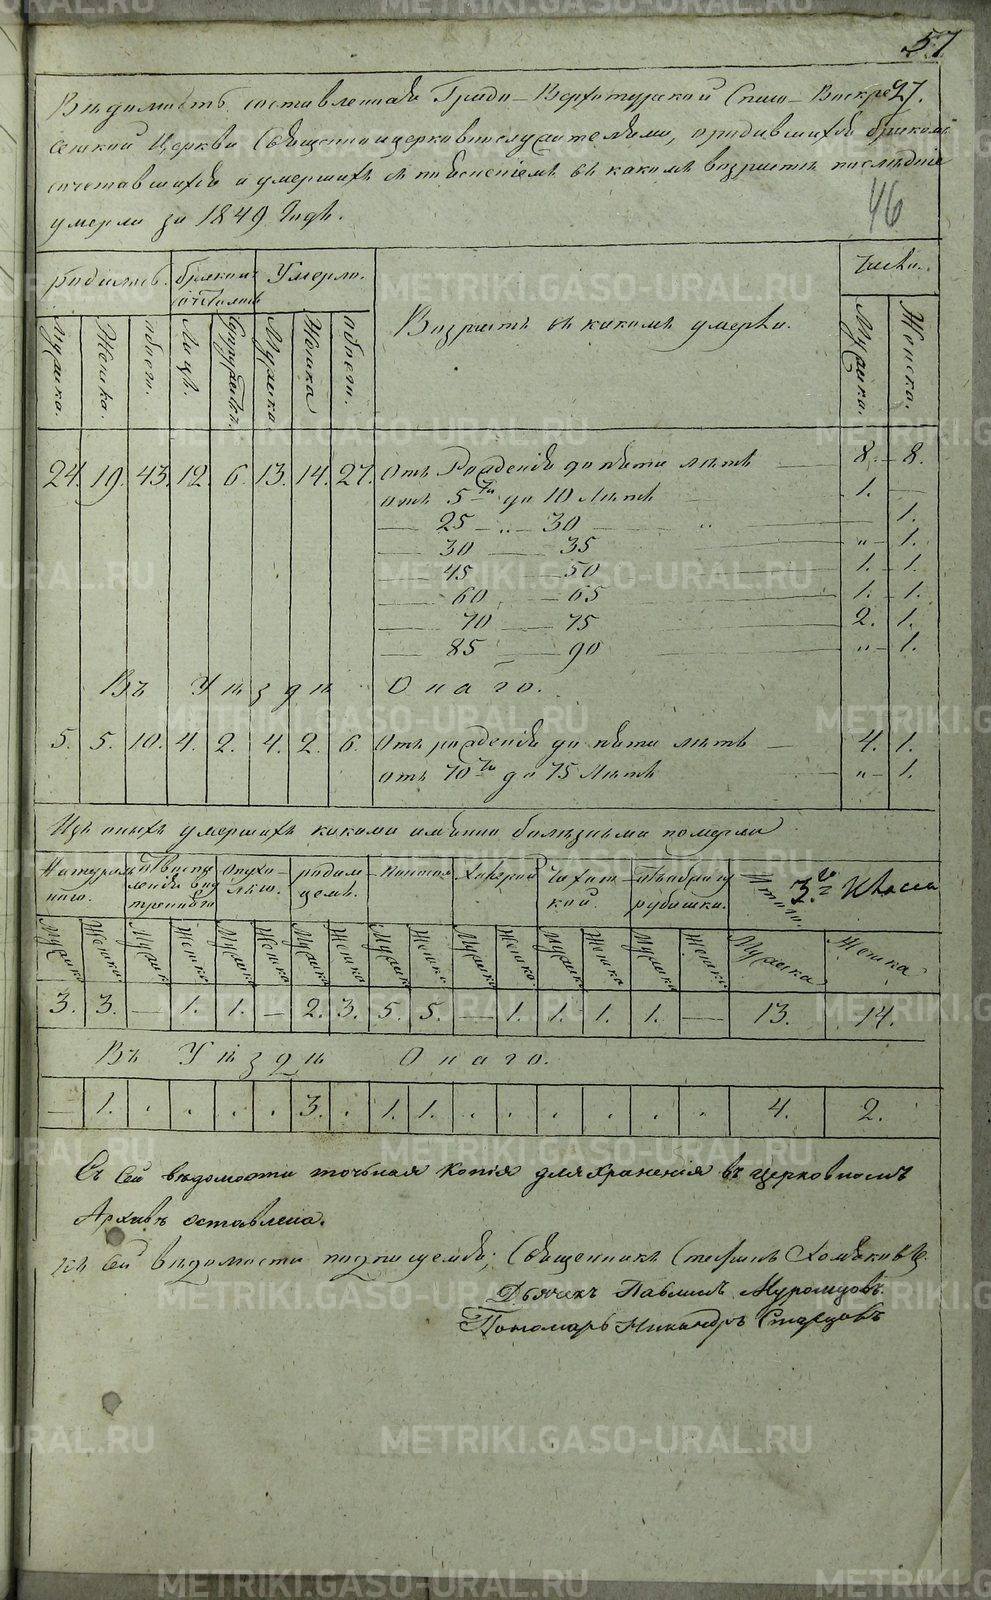 57
27.
Вѣдомость составленная Градо-Верхотурской Спасо-Воскре-
сенской Церкви Священноцерковнослужителями, о родившихся бракомъ
сочетавшихся и умершихъ съ поясненіемъ въ какомъ возрастѣ послѣдніе
умерли за 1849 Годъ.
46
родилось. бракомъ сочеталось Умерло. Возрастъ въ какомъ умерли. Число.
Мужска. Женска. обоего. Лицъ. Супружствъ. Мужска Женска обоего. Мужска. Женска.
24. 19. 43. 12. 6. 13. 14. 27. Отъ Рожденія до пяти лѣтъ — 8. 8.
отъ 5ти до 10 Лѣтъ — 1. —
— 25 — „ — 30 — „ — 1.
— 30 — 35 — „ — 1.
— 45 — 50 — 1. 1.
— 60 — 65 — 1. 1.
— 70 — 75 — 2. 1.
— 85 — 90 „ — 1.
Въ Уѣздѣ Онаго.
5. 5. 10. 4. 2. 4. 2. 6. Отъ рожденія до пяти лѣтъ — 4. 1.
отъ 70ти до 75 Лѣтъ „ — 1.
Изъ оныхъ умершихъ какими именно болѣзньми померли
родимцемъ. Чахоткой. Итого 3го Класса
Мужска Женска Мужска Женска Мужска Женска Мужска Женска Мужска Женска Мужска Женска Мужска Женска Мужска Женска Мужска Женска
3. 3. — 1. 1. — 2. 3. 5. 5. — 1. 1. 1. 1. — 13. 14.
Въ Уѣздѣ Онаго.
— 1. . . . . 3. . 1. 1. . . . . . . 4. 2.
Съ сей вѣдомости точная Копія для храненія въ церковномъ
Архивѣ оставлена.
къ сей вѣдомости подписуемся; Священникъ Стефанъ Хомяковъ
Дьячекъ Павелъ Муромцовъ.
Пономарь Никандръ Старцовъ
METRIKI.GASO-URAL.RU